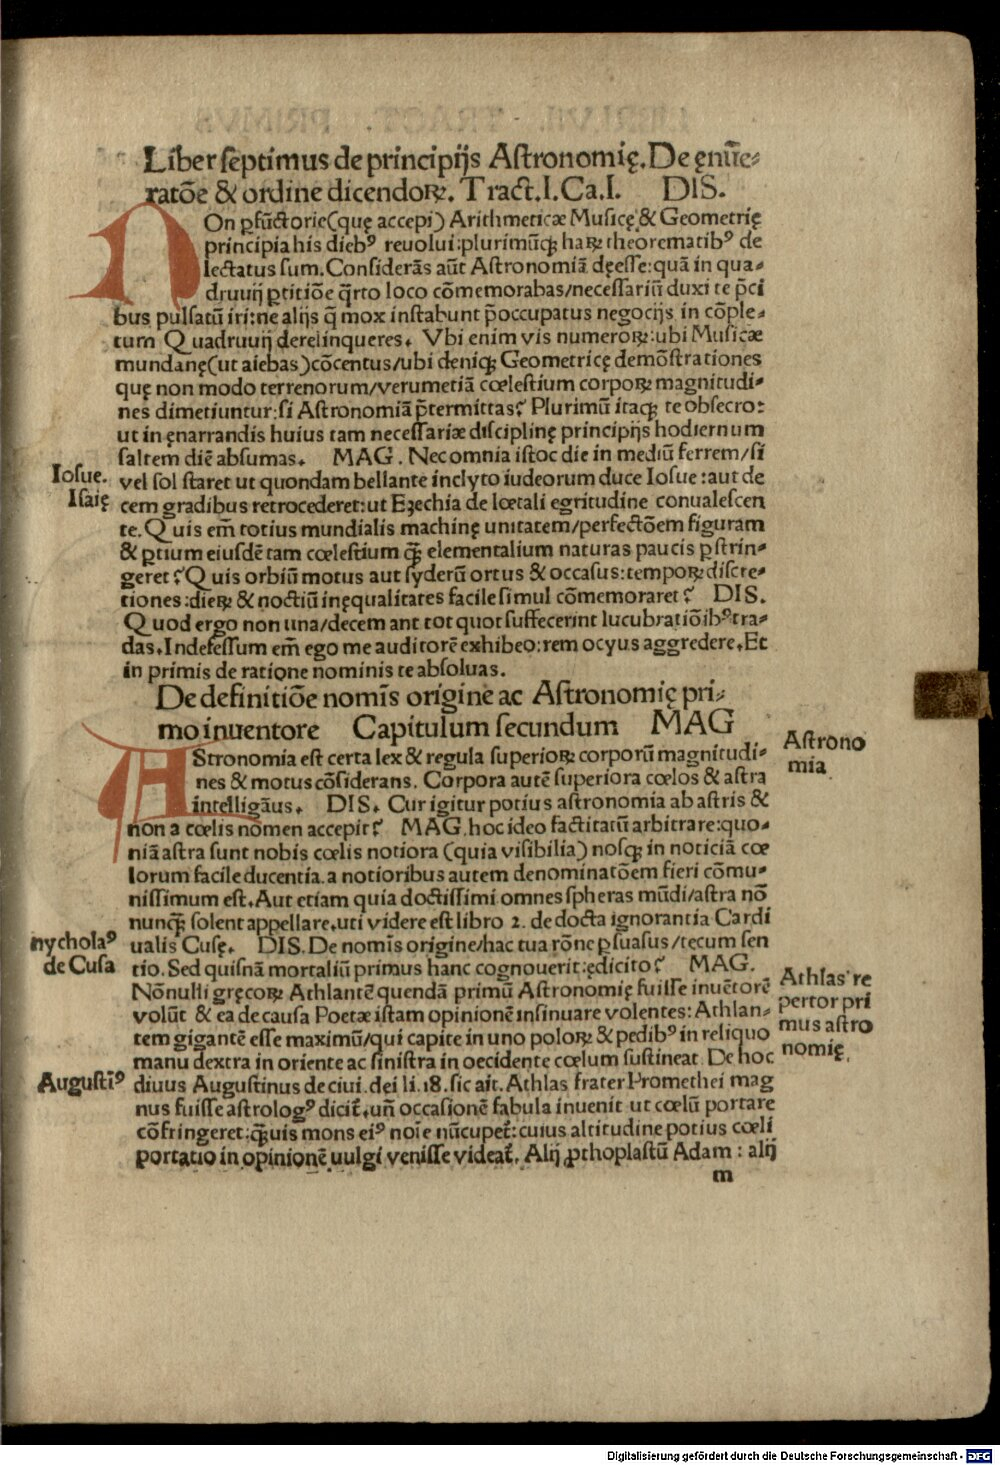 Liber septimus de principijs Astronomię. De ęnūe⸗
ratōe & ordine dicendoꝝ. Tract. I. Ca. I. DIS.
NOn ꝑfūctorie (quę accepi) Arithmeticæ Musicę & Geometrię
principia his diebꝰ reuolui: plurimūqꝫ haꝝ theorematibꝰ de
lectatus sum. Considerās aūt Astronomiā dęesse: quā in qua⸗
druuij ꝑtitiōe q̄rto loco cōmemorabas/necessariū duxi te p̄ci
bus pulsatū iri: ne alijs q̄ mox instabunt p̄occupatus negocijs in cōple⸗
tum Quadruuij derelinqueres. Vbi enim vis numeroꝝ: ubi Musicæ
mundanę (ut aiebas) cōcentus/ubi deniqꝫ Geometricę demōstrationes
quę non modo terrenorum/verumetiā cœlestium corpoꝝ magnitudi⸗
nes dimetiuntur: si Astronomiā p̄termittas? Plurimū itaqꝫ te obsecro:
ut in ęnarrandis huius tam necessariæ disciplinę principijs hodiernum
saltem diē absumas. MAG. Nec omnia istoc die in mediū ferrem/si
Iosue.
vel sol staret ut quondam bellante inclyto iudeorum duce Iosue: aut de
Isaię
cem gradibus retrocederet: ut Ezechia de lœtali egritudine conualescen
te. Quis em̄ totius mundialis machinę unitatem/perfectōem figuram
& ꝑtium eiusdē tam cœlestium qꝫ̄ elementalium naturas paucis ꝑstrin⸗
geret? Quis orbiū motus aut syderū ortus & occasus: tempoꝝ discre⸗
tiones: dieꝝ & noctiū inęqualitates facile simul cōmemoraret? DIS.
Quod ergo non una/decem ant tot quot suffecerint lucubratiōibꝰ tra⸗
das. Indefessum em̄ ego me auditorē exhibeo: rem ocyus aggredere. Et
in primis de ratione nominis te absoluas.
De definitiōe nomīs origine ac Astronomię pri⸗
mo inuentore Capitulum secundum MAG
AStronomia est certa lex & regula superioꝝ corporū magnitudi⸗
Astrono
mia
nes & motus cōsiderans. Corpora autē superiora cœlos & astra
intelligāus. DIS. Cur igitur potius astronomia ab astris &
non a cœlis nomen accepit? MAG. hoc ideo factitatū arbitrare: quo⸗
niā astra sunt nobis cœlis notiora (quia visibilia) nosqꝫ in noticiā cœ
lorum facile ducentia. a notioribus autem denominatōem fieri cōmu⸗
nissimum est. Aut etiam quia doctissimi omnes spheras mūdi/astra nō
nunqꝫ̄ solent appellare. uti videre est libro 2. de docta ignorantia Cardi
nycholaꝰ
de Cusa
ualis Cusę. DIS. De nomīs origine/hac tua rōne ꝑsuasus/tecum sen
tio. Sed quisnā mortaliū primus hanc cognouerit: ędicito? MAG.
Nōnulli gręcoꝝ Athlantē quendā primū Astronomię fuisse inuētorē
Athlas re
pertor pri
mus astro
nomię.
volūt & ea de causa Poetæ istam opinionē insinuare volentes: Athlan⸗
tem gigantē esse maximū/qui capite in uno poloꝝ & pedibꝰ in reliquo
manu dextra in oriente ac sinistra in oecidente cœlum sustineat. De hoc
Augustīꝰ
diuus Augustinus de ciui. dei li. 18. sic ait. Athlas frater Promethei mag
nus fuisse astrologꝰ dicit̄. un̄ occasionē fabula inuenit ut cœlū portare
cōfringeret: qꝫ̄uis mons eiꝰ noīe nūcupet̄: cuius altitudine potius cœli
portatio in opinionē uulgi venisse videat̄. Alij ꝓthoplastū Adam: alij
m
Digitalisierung gefördert durch die Deutsche Forschungsgemeinschaft - DFG